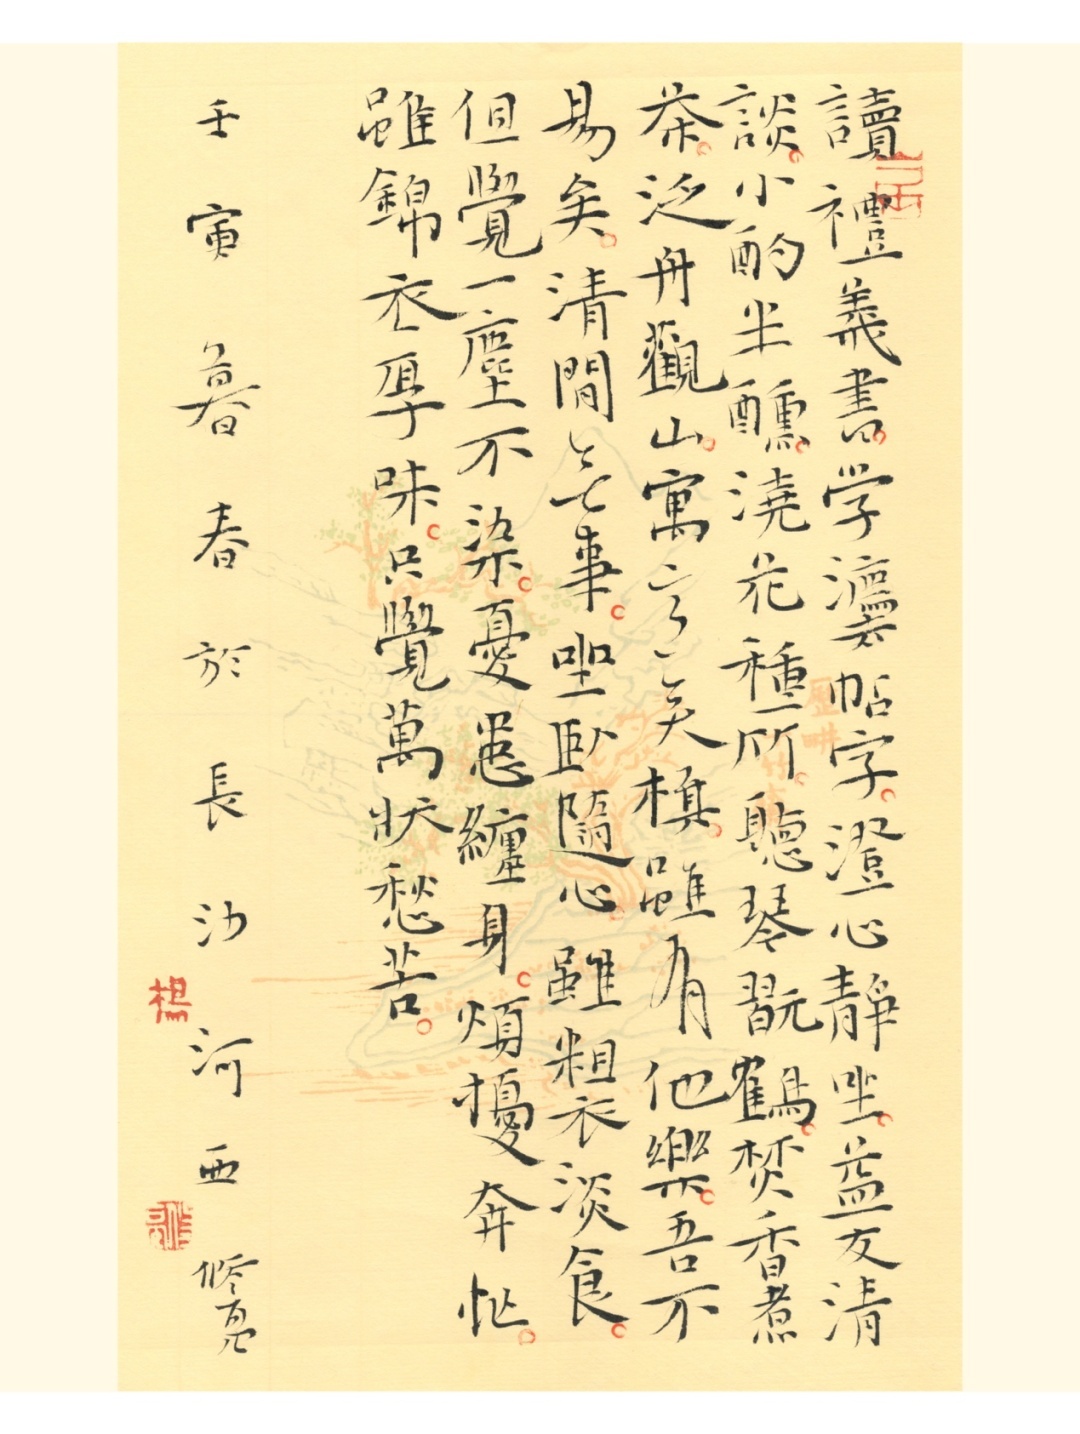 讀禮義書。学灋帖字。澄心靜坐。益友清
談。小酌半醺。澆花種竹。聽琴翫鶴。焚香煮
茶。泛舟觀山。寓意奕棋。雖有他樂。吾不
易矣。清閒無事。坐卧隨心。雖粗衣淡食。
但覺一塵不染。憂患纏身。煩擾奔忙。
雖錦衣厚味。只覺萬狀愁苦。
壬寅暮春於長沙河西修亮